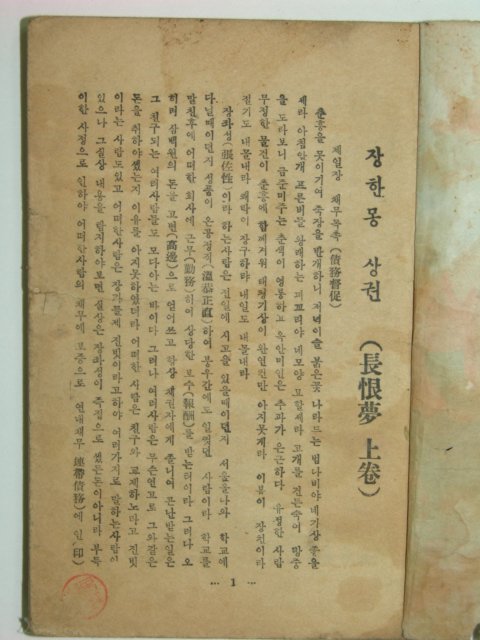 장한몽 상권 (長恨夢 上卷)
제일장 채무독촉 (債務督促)
춘흥을 못이기여 죽장을 반개하니 저녁이슬 붉은꽃 나라드는 범나비야 네가 상춘을
세라 아침안개 푸른버들 왕래하는 꾀꼬리야 네모양 고할세라 고개를 건듯숙여
을 도라보니 금준미주는 춘색이 영롱하고 옥안미인은 추파가 은근하다 유정한 사람
무정한 물건이 춘흥에 함께겨워 태평기상이 완연컨만 아지못게라 이봄이 장천이라
질기도 내몰내라 쾌락이 장구하랴 내일도 내몰내라
장좌성(張佐性)이라 하는사람은 전일에 시고을 있을때이던지 서울올나와 학교에
다닐때이던지 성품이 온공정직(溫恭正直)하여 붕우간에도 일컷던 사람이라 학교를
맟친후에 어떠한 회사에 근무(勤務)하여 상당한 보수(報酬)를 받는터이라 그러나 오
히려 삼백원의 돈을 고변(高邊)으로 얻어쓰고 항상 채권자에게 졸니여 곤난받는일은
그 친구되는 여러사람들도 모다아는 바이다 그러나 여러사람은 무슨연고로 그와같은
돈을 취하야썼는지 이유를 아지못하였더라 어떠한 사람은 친구와 교제하노라고 진빚
이라는 사람도있고 어떠한사람은 장가들제 진빚이라고하야 여러가지로 말하는사람이
있으나 그실상 내용을 탐지하야보면 실상은 장좌성이 즉접으로 썼든돈이아니라 부득
이한 사정으로 인하야 어떠한사람의 채무에 보증으로 연대채무 連帶債務)에 일(印)
… 1 …